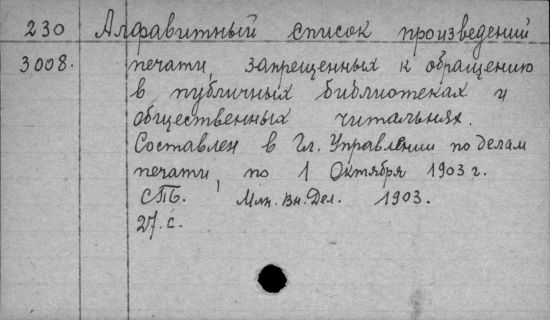 230 Алфавитный список произведений
3008. печати, запрещенных к обращению
в публичных библиотеках и
общественных читальнях.
Составлен в Гл. Управлении по делам
печати, по 1 Октября 1903 г.
СПб. Мин. Вн. Дел. 1903.
27. с.